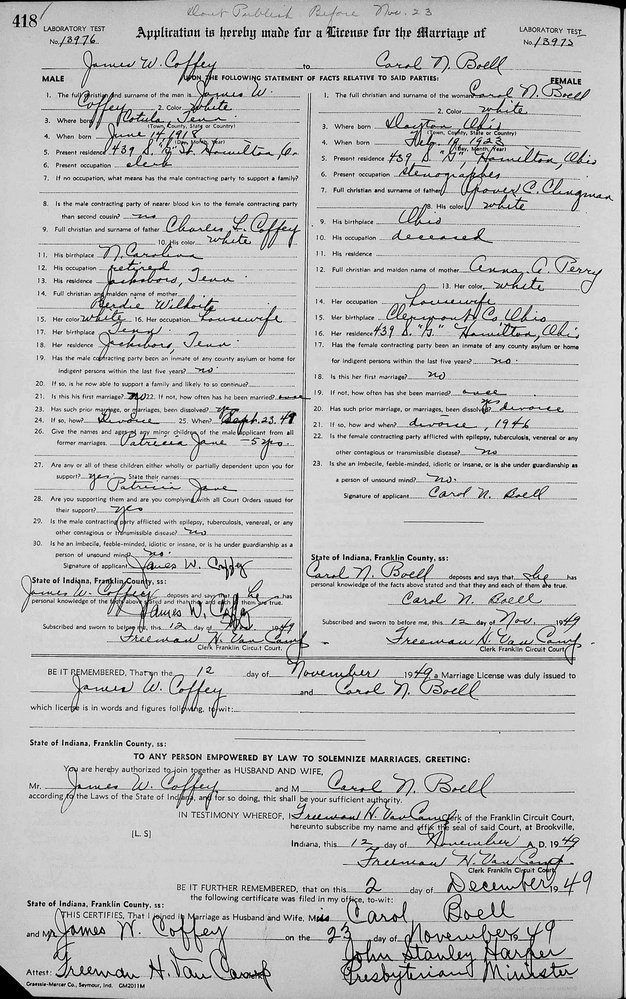 418
Don't Publish Before Nov. 23
LABORATORY TEST
No. 13976
Application is hereby made for a License for the Marriage of
LABORATORY TEST
No. 13975
James W. Coffey to Carol N. Boell
MALE UPON THE FOLLOWING STATEMENT OF FACTS RELATIVE TO SAID PARTIES: FEMALE
1. The full christian and surname of the man is James W.
Coffey 2. Color White
3. Where born Tenn.
(Town, County, State or Country)
4. When born June 14, 1918
(Day, Month, Year)
5. Present residence 439 S. "G" St. Hamilton, O.
6. Present occupation clerk
7. If no occupation, what means has the male contracting party to support a family?
8. Is the male contracting party of nearer blood kin to the female contracting party
than second cousin? no
9. Full christian and surname of father Charles L. Coffey
10. His color white
11. His birthplace N. Carolina
12. His occupation retired
13. His residence Jacksboro, Tenn
14. Full christian and maiden name of mother
Berdie Wilhoite
15. Her color white 16. Her occupation housewife
17. Her birthplace Tenn
18. Her residence Jacksboro, Tenn.
19. Has the male contracting party been an inmate of any county asylum or home for
indigent persons within the last five years? no
20. If so, is he now able to support a family and likely to so continue?
21. Is this his first marriage? no 22. If not, how often has he been married? once
23. Has such prior marriage, or marriages, been dissolved? yes
24. If so, how? Divorce 25. When? Sept. 23. 49
26. Give the names and ages of any minor children of the male applicant from all
former marriages. Patricia Jane - 5 yrs.
27. Are any or all of these children either wholly or partially dependent upon you for
support? yes State their names:
Patricia Jane
28. Are you supporting them and are you complying with all Court Orders issued for
their support? yes
29. Is the male contracting party afflicted with epilepsy, tuberculosis, venereal, or any
other contagious or transmissible disease? no
30. Is he an imbecile, feeble-minded, idiotic or insane, or is he under guardianship as a
person of unsound mind? no
Signature of applicant James W. Coffey
State of Indiana, Franklin County, ss:
James W. Coffey deposes and says that he has
personal knowledge of the facts above stated and that they and each of them are true.
James W. Coffey
Subscribed and sworn to before me, this 12 day of Nov. 1949
Freeman H. Van Camp
Clerk Franklin Circuit Court.
1. The full christian and surname of the woman Carol N. Boell
2. Color white
3. Where born Dayton Ohio
(Town, County, State or Country)
4. When born Feb. 19 1923
(Day, Month, Year)
5. Present residence 439 S. "G" Hamilton, Ohio
6. Present occupation stenographer
7. Full christian and surname of father Grover C. Clingman
8. His color white
9. His birthplace Ohio
10. His occupation deceased
11. His residence
12. Full christian and maiden name of mother Anna A. Perry
13. Her color white
14. Her occupation housewife
15. Her birthplace Clermont Co Ohio
16. Her residence 439 S. "G" Hamilton, Ohio
17. Has the female contracting party been an inmate of any county asylum or home
for indigent persons within the last five years? no.
18. Is this her first marriage? no
19. If not, how often has she been married? once
20. Has such prior marriage, or marriages, been dissolved? yes divorce
21. If so, how and when? divorce, 1946
22. Is the female contracting party afflicted with epilepsy, tuberculosis, venereal or any
other contagious or transmissible disease? no
23. Is she an imbecile, feeble-minded, idiotic or insane, or is she under guardianship as
a person of unsound mind? no.
Signature of applicant Carol N. Boell
State of Indiana, Franklin County, ss:
Carol N. Boell deposes and says that she has
personal knowledge of the facts above stated and that they and each of them are true.
Carol N. Boell
Subscribed and sworn to before me, this 12 day of Nov. 1949
Freeman H. Van Camp
Clerk Franklin Circuit Court.
BE IT REMEMBERED, That on the 12 day of November 1949 a Marriage License was duly issued to
James W. Coffey and Carol N. Boell
which license is in words and figures following, to-wit:
State of Indiana, Franklin County, ss:
TO ANY PERSON EMPOWERED BY LAW TO SOLEMNIZE MARRIAGES, GREETING:
You are hereby authorized to join together as HUSBAND AND WIFE,
Mr. James W. Coffey and M Carol N. Boell
according to the Laws of the State of Indiana, and for so doing, this shall be your sufficient authority.
IN TESTIMONY WHEREOF, I Freeman H. Van Camp Clerk of the Franklin Circuit Court,
hereunto subscribe my name and affix the seal of said Court, at Brookville,
[L. S]
Indiana, this 12 day of November A. D. 1949
Freeman H. Van Camp
Clerk Franklin Circuit Court
BE IT FURTHER REMEMBERED, that on this 2 day of December, 1949
the following certificate was filed in my office, to-wit:
State of Indiana, Franklin County, ss:
THIS CERTIFIES, That I joined in Marriage as Husband and Wife, Miss Carol Boell
and Mr James W. Coffey on the 23 day of November 1949
John Stanley Harper
Attest: Freeman H. Van Camp Presbyterian Minister
Graessle-Mercer Co., Seymour, Ind. GM2011M